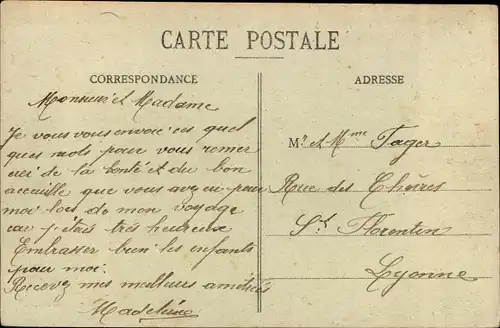 CARTE POSTALE
CORRESPONDANCE
ADRESSE
Monsieur et Madame
Je vous vous envoie ces quel
ques mots pour vous remer
cier de la bonté et du bon
accueille que vous avez eu pour
moi lors de mon voyage
car j'etais très heureux
Embrasser bien les enfants
pour moi.
Recevez mes meilleurs amitiés
Madeleine
Mr. et Mme Tager
Rue des
St Florentin
Lyonne